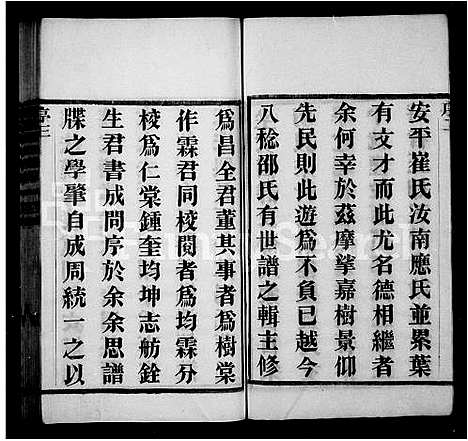 安平崔氏汝南應氏並累葉
有文才而此尤名德相繼者
余何幸於茲摩挲嘉樹景仰
先民則此遊為不負已越今
八稔邵氏有世譜之輯主修
為昌全君董其事者為樹棠
作霖君同校閱者為均霖分
校為仁棠鍾奎均坤志舫銓
生君書成問序於余余思譜
牒之學肇自成周統一之以
序三